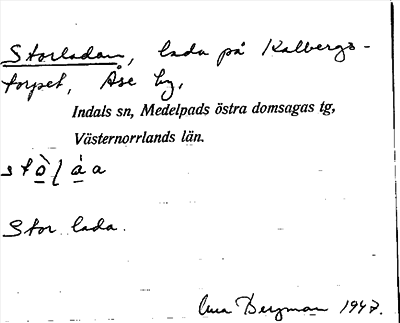 Storladan, lada på Kalbergs-
torpet, Åse by,
Indals sn, Medelpads östra domsagas tg,
Västernorrlands län.
Stor lada.
Bergman 1947.